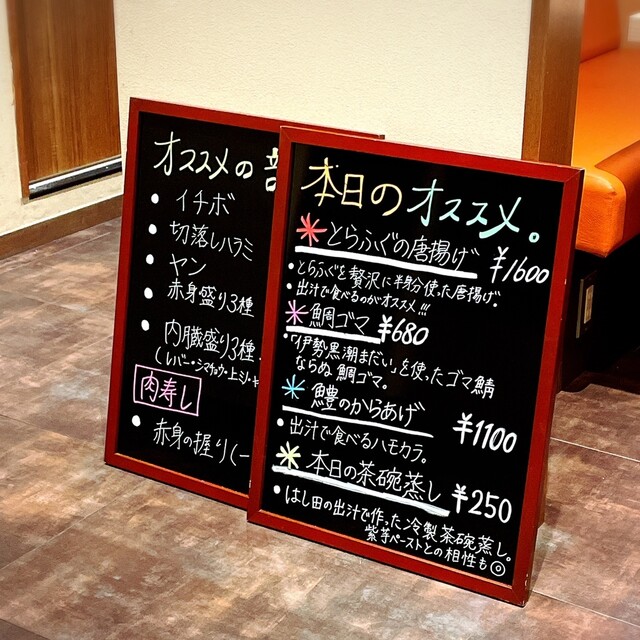 オススメの
・イチボ
・切落しハラミ
・ヤン
・赤身盛り3種
・内臓盛り3種
(レバー・シマチョウ・上ミノ・
肉寿し
・赤身の握り(一
本日のオススメ。
とらふぐの唐揚げ ¥1600
・とらふぐを贅沢に半身分使った唐揚げ。
・出汁で食べるのがオススメ!!!
鯛ゴマ ¥680
・「伊勢黒潮まだい」を使ったゴマ鯖
ならぬ鯛ゴマ。
鱧のからあげ ¥1100
・出汁で食べるハモカラ。
本日の茶碗蒸し ¥250
・はし田の出汁で作った冷製茶碗蒸し。
紫芋ペーストとの相性も◎